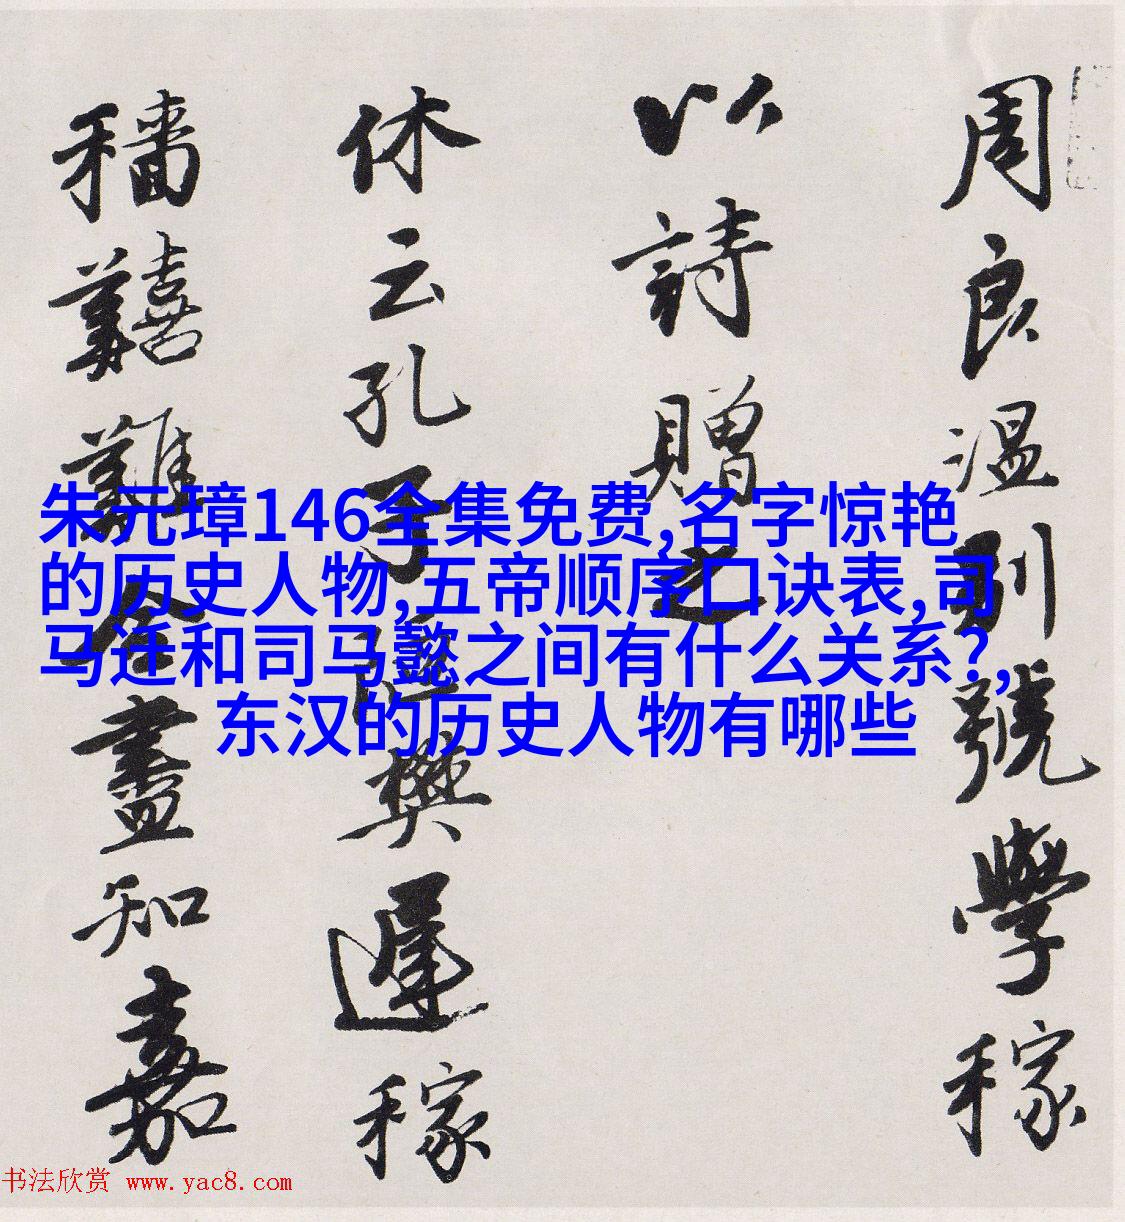 周良温别號學稼
以詩贈之
休云孔子陋樊遲稼
穡艱難合盡知嘉
朱元璋146全集免费,名字惊艳
的历史人物,五帝顺序口诀表,司
马迁和司马懿之间有什么关系?,
东汉的历史人物有哪些
书法欣赏 www.yac8.com